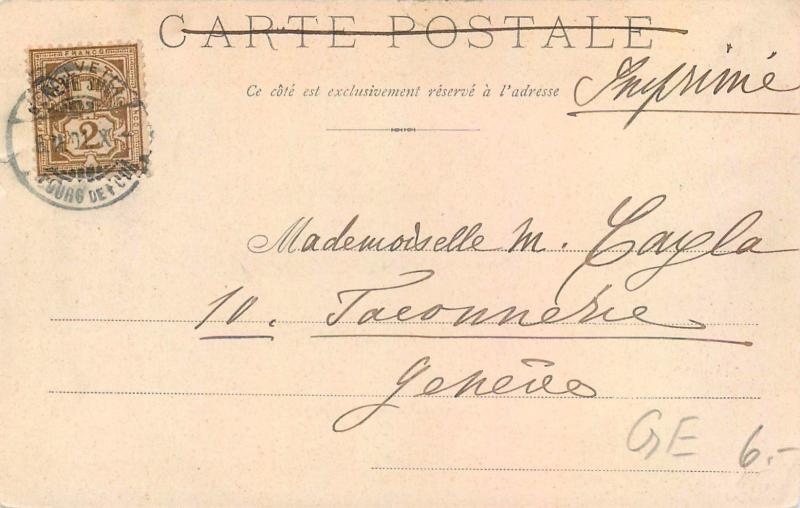 CARTE POSTALE
Ce côté est exclusivement réservé à l'adresse
Imprimé
FRANCO
HELVETIA
2
BOURG DE FOUR
Mademoiselle M. Cayla
10. Taconnerie
Genève
GE 6.-